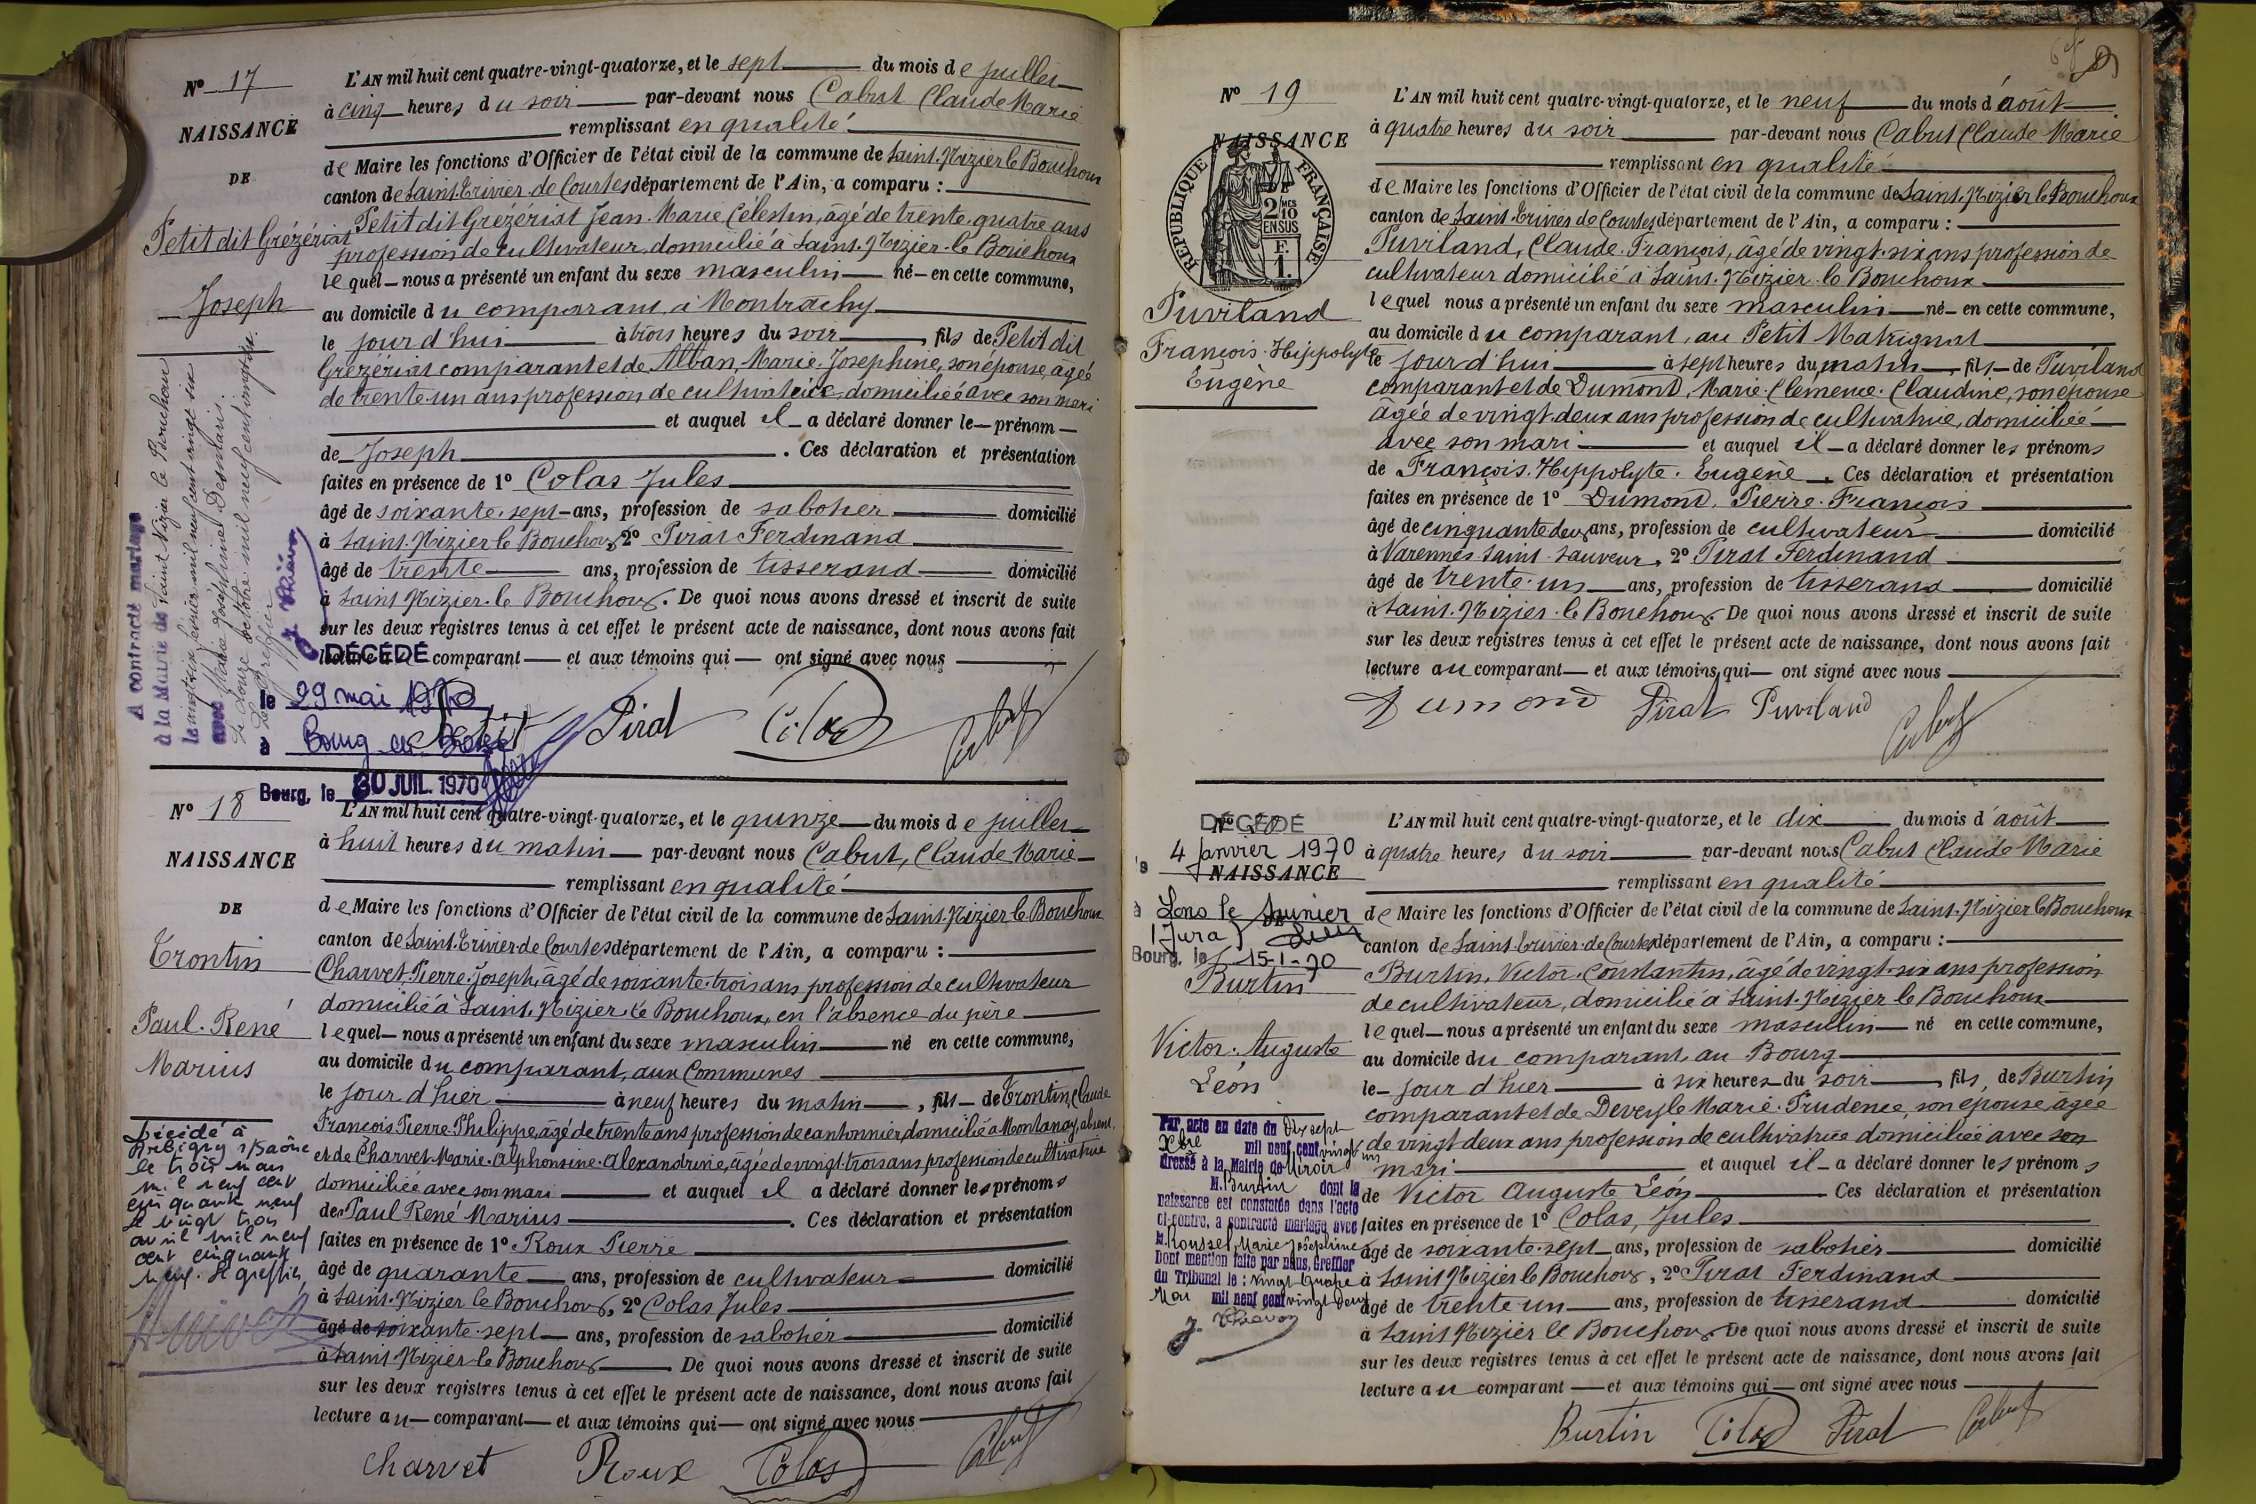 N° 17
NAISSANCE
DE
Petit dit Grézériat
Joseph
A contracté mariage
à la Mairie de Saint Nizier le Bouchoux
le vingt six février mil neuf cent vingt six
avec Marie Joséphine Desmaris.
Le douze octobre mil neuf cent vingt six
Le Greffier
L'AN mil huit cent quatre-vingt-quatorze, et le sept du mois de juillet
à cinq heures du soir par-devant nous Cabut Claude Marie
remplissant en qualité
de Maire les fonctions d'Officier de l'état civil de la commune de Saint-Nizier le Bouchoux
canton de Saint-Trivier-de-Courtes département de l'Ain, a comparu :
Petit dit Grézériat Jean-Marie Célestin, âgé de trente-quatre ans
profession de cultivateur, domicilié à Saint-Nizier-le Bouchoux
lequel nous a présenté un enfant du sexe masculin né en cette commune,
au domicile du comparant, à Montrachy
le jour d'hui à trois heures du soir, fils de Petit dit
Grézériat comparant et de Alban, Marie-Josephine, son épouse, agée
de trente-un ans profession de cultivatrice, domiciliée avec son mari
et auquel il a déclaré donner le prénom
de Joseph. Ces déclaration et présentation
faites en présence de 1° Colas Jules
âgé de soixante-sept ans, profession de sabotier domicilié
à Saint-Nizier le Bouchoux, 2° Pirat Ferdinand
âgé de trente ans, profession de tisserand domicilié
à Saint Nizier-le Bouchoux. De quoi nous avons dressé et inscrit de suite
sur les deux registres tenus à cet effet le présent acte de naissance, dont nous avons fait
lecture au comparant et aux témoins qui ont signé avec nous
DÉCÉDÉ
le 29 mai 1970
à Bourg en Bresse
Petit Pirat Colas Cabut
Bourg, le 30 JUIL. 1970
N° 18
NAISSANCE
DE
Trontin
Paul-René
Marius
Décédé à
Arbigny s/Saône
le trois mars
mil neuf cent
cinquante neuf
le vingt trois
avril mil neuf
cent cinquante
neuf. Le greffier,
L'AN mil huit cent quatre-vingt-quatorze, et le quinze du mois de juillet
à huit heures du matin par-devant nous Cabut, Claude Marie
remplissant en qualité
de Maire les fonctions d'Officier de l'état civil de la commune de Saint-Nizier le Bouchoux
canton de Saint-Trivier-de-Courtes département de l'Ain, a comparu :
Charvet, Pierre-Joseph, âgé de soixante-trois ans profession de cultivateur
domicilié à Saint-Nizier-le Bouchoux, en l'absence du père
lequel nous a présenté un enfant du sexe masculin né en cette commune,
au domicile du comparant, aux Communes
le jour d'hier à neuf heures du matin, fils de Trontin, Claude
François Pierre-Philippe, âgé de trente ans profession de cantonnier, domicilié à Montanay, absent,
et de Charvet-Marie-Alphonsine-Alexandrine, âgée de vingt-trois ans profession de cultivatrice
domiciliée avec son mari et auquel il a déclaré donner les prénoms
de Paul René Marius. Ces déclaration et présentation
faites en présence de 1° Roux Pierre
âgé de quarante ans, profession de cultivateur domicilié
à Saint-Nizier le Bouchoux, 2° Colas Jules
âgé de soixante-sept ans, profession de sabotier domicilié
à Saint-Nizier-le Bouchoux De quoi nous avons dressé et inscrit de suite
sur les deux registres tenus à cet effet le présent acte de naissance, dont nous avons fait
lecture au comparant et aux témoins qui ont signé avec nous
Charvet Roux Colas Cabut
N° 19
NAISSANCE
RÉPUBLIQUE FRANÇAISE
2 MES 10
EN SUS
F.
1.
Puviland
François-Hippolyte
Eugène
L'AN mil huit cent quatre-vingt-quatorze, et le neuf du mois d'août
à quatre heures du soir par-devant nous Cabut Claude Marie
remplissant en qualité
de Maire les fonctions d'Officier de l'état civil de la commune de Saint-Nizier le Bouchoux
canton de Saint-Trivier de Courtes département de l'Ain, a comparu :
Puviland, Claude-François, âgé de vingt-six ans profession de
cultivateur domicilié à Saint-Nizier-le Bouchoux
lequel nous a présenté un enfant du sexe masculin né en cette commune,
au domicile du comparant, au Petit Matrignat
le jour d'hui à sept heures du matin, fils de Puviland
comparant et de Dumont, Marie-Clémence-Claudine, son épouse
âgée de vingt-deux ans profession de cultivatrice, domiciliée
avec son mari et auquel il a déclaré donner les prénoms
de François-Hippolyte-Eugène. Ces déclaration et présentation
faites en présence de 1° Dumond, Pierre-François
âgé de cinquante deux ans, profession de cultivateur domicilié
à Varennes-Saint-Sauveur, 2° Pirat Ferdinand
âgé de trente-un ans, profession de tisserand domicilié
à Saint-Nizier-le Bouchoux. De quoi nous avons dressé et inscrit de suite
sur les deux registres tenus à cet effet le présent acte de naissance, dont nous avons fait
lecture au comparant et aux témoins, qui ont signé avec nous
Dumond Pirat Puviland Cabut
N° 20
DÉCÉDÉ
le 4 janvier 1970
NAISSANCE
à Lons le Saunier
DE
(Jura)
Bourg, le 15-1-70
Burtin
Victor-Auguste
Léon
Par acte en date du dix sept
Xbre mil neuf cent vingt un
dressé à la Mairie de Miroir
M. Burtin dont la
naissance est constatée dans l'acte
ci-contre, a contracté mariage avec
M. Roussel, Marie Joséphine
Dont mention faite par nous, Greffier
du Tribunal le : vingt quatre
Mai mil neuf cent vingt deux
L'AN mil huit cent quatre-vingt-quatorze, et le dix du mois d'août
à quatre heures du soir par-devant nous Cabut Claude Marie
remplissant en qualité
de Maire les fonctions d'Officier de l'état civil de la commune de Saint-Nizier le Bouchoux
canton de Saint-Trivier-de-Courtes département de l'Ain, a comparu :
Burtin, Victor-Constantin, âgé de vingt-six ans profession
de cultivateur, domicilié à Saint-Nizier le Bouchoux
lequel nous a présenté un enfant du sexe masculin né en cette commune,
au domicile du comparant, au Bourg
le jour d'hier à six heures du soir, fils, de Burtin
comparant et de Deveyle Marie-Prudence, son épouse, agée
de vingt deux ans profession de cultivatrice domiciliée avec son
mari et auquel il a déclaré donner les prénoms
de Victor Auguste Léon Ces déclaration et présentation
faites en présence de 1° Colas, Jules
âgé de soixante-sept ans, profession de sabotier domicilié
à Saint Nizier le Bouchoux, 2° Pirat Ferdinand
âgé de trente un ans, profession de tisserand domicilié
à Saint Nizier le Bouchoux. De quoi nous avons dressé et inscrit de suite
sur les deux registres tenus à cet effet le présent acte de naissance, dont nous avons fait
lecture au comparant et aux témoins qui ont signé avec nous
Burtin Colas Pirat Cabut